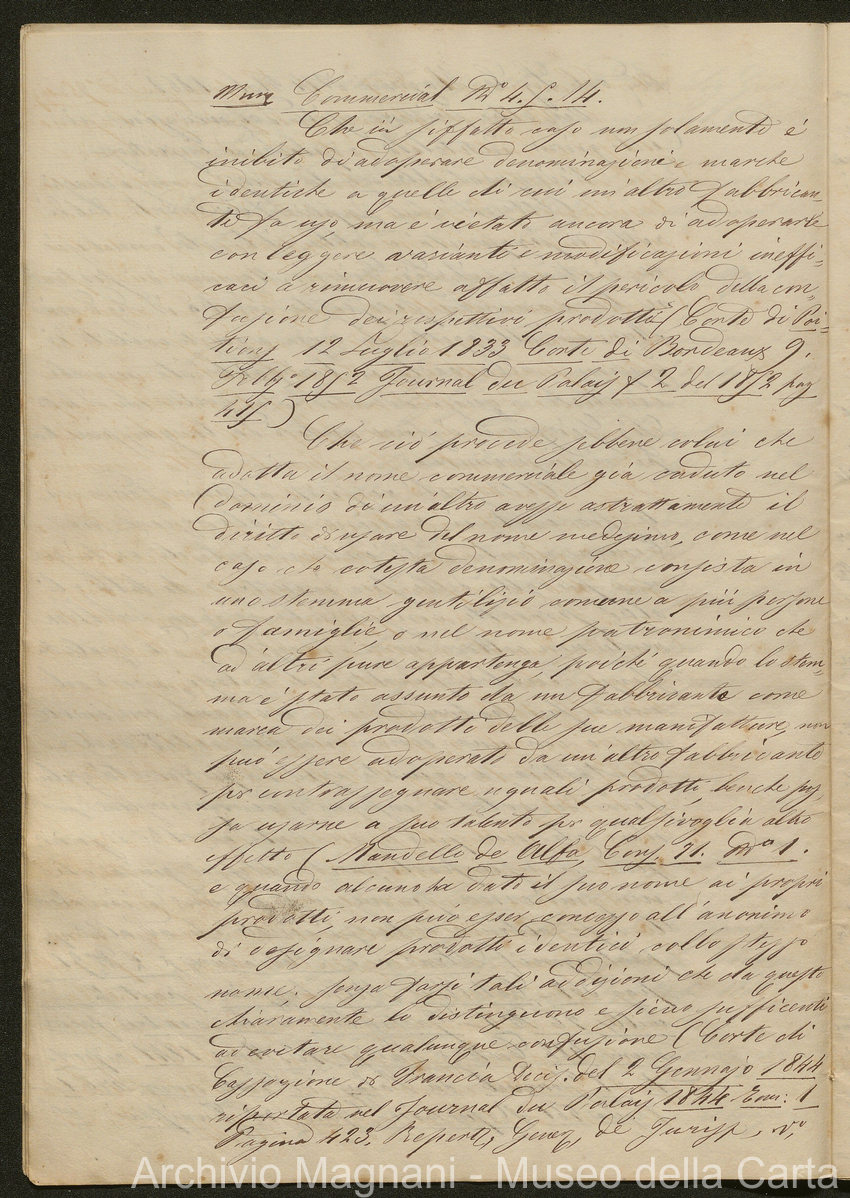 Commercial N.° 4. f. 14.
Che in siffatto caso non solamente é
inibito di adoperare denominazioni e marche
identiche a quelle di cui un'altro fabbrican-
te fa uso, ma é vietato ancora di adoperarle
con leggere varianti e modificazioni ineffi-
caci a rimuovere affatto il pericolo della con-
fusione dei respettivi prodotti (Corte di Poi-
tiers 12 Luglio 1833 Corte di Bordeaux 9.
1852 Journal du Palais t 2 del 1852 pag
415)
Che ció procede sebbene colui che
adotta il nome commerciale giá caduto nel
dominio di un'altro avesse astrattamente il
diritto di usare del nome medesimo, come nel
caso che cotesta denominazione consista in
uno stemma gentilizio comune a piú persone
o famiglie, o nel nome patronimico che
ad altri pure appartenga, poiché quando lo stem-
ma é stato assunto da un fabbricante come
marca dei prodotti delle sue manifatture, non
puó essere adoperato da un'altro fabbricante
per contrassegnare uguali prodotti, benche pos-
sa usarne a suo talento per qualsivoglia altro
effetto (Mandello de Alba, Cons. 71. N.° 1.
e quando alcuno ha dato il suo nome ai propri
prodotti, non puó esser concesso all'anonimo
di designare prodotti identici collo stesso
nome, senza farsi tali addizioni che da questo
chiaramente lo distinguono e sieno sufficenti
ad evitare qualunque confusione (Corte di
Cassazione di Francia Decis. del 2 Gennajo 1844
riportata nel Journal du Palais 1844 Tom: 1
Pagina 423. Repert, Gener, de Jurisp, v.°
Archivio Magnani - Museo della Carta